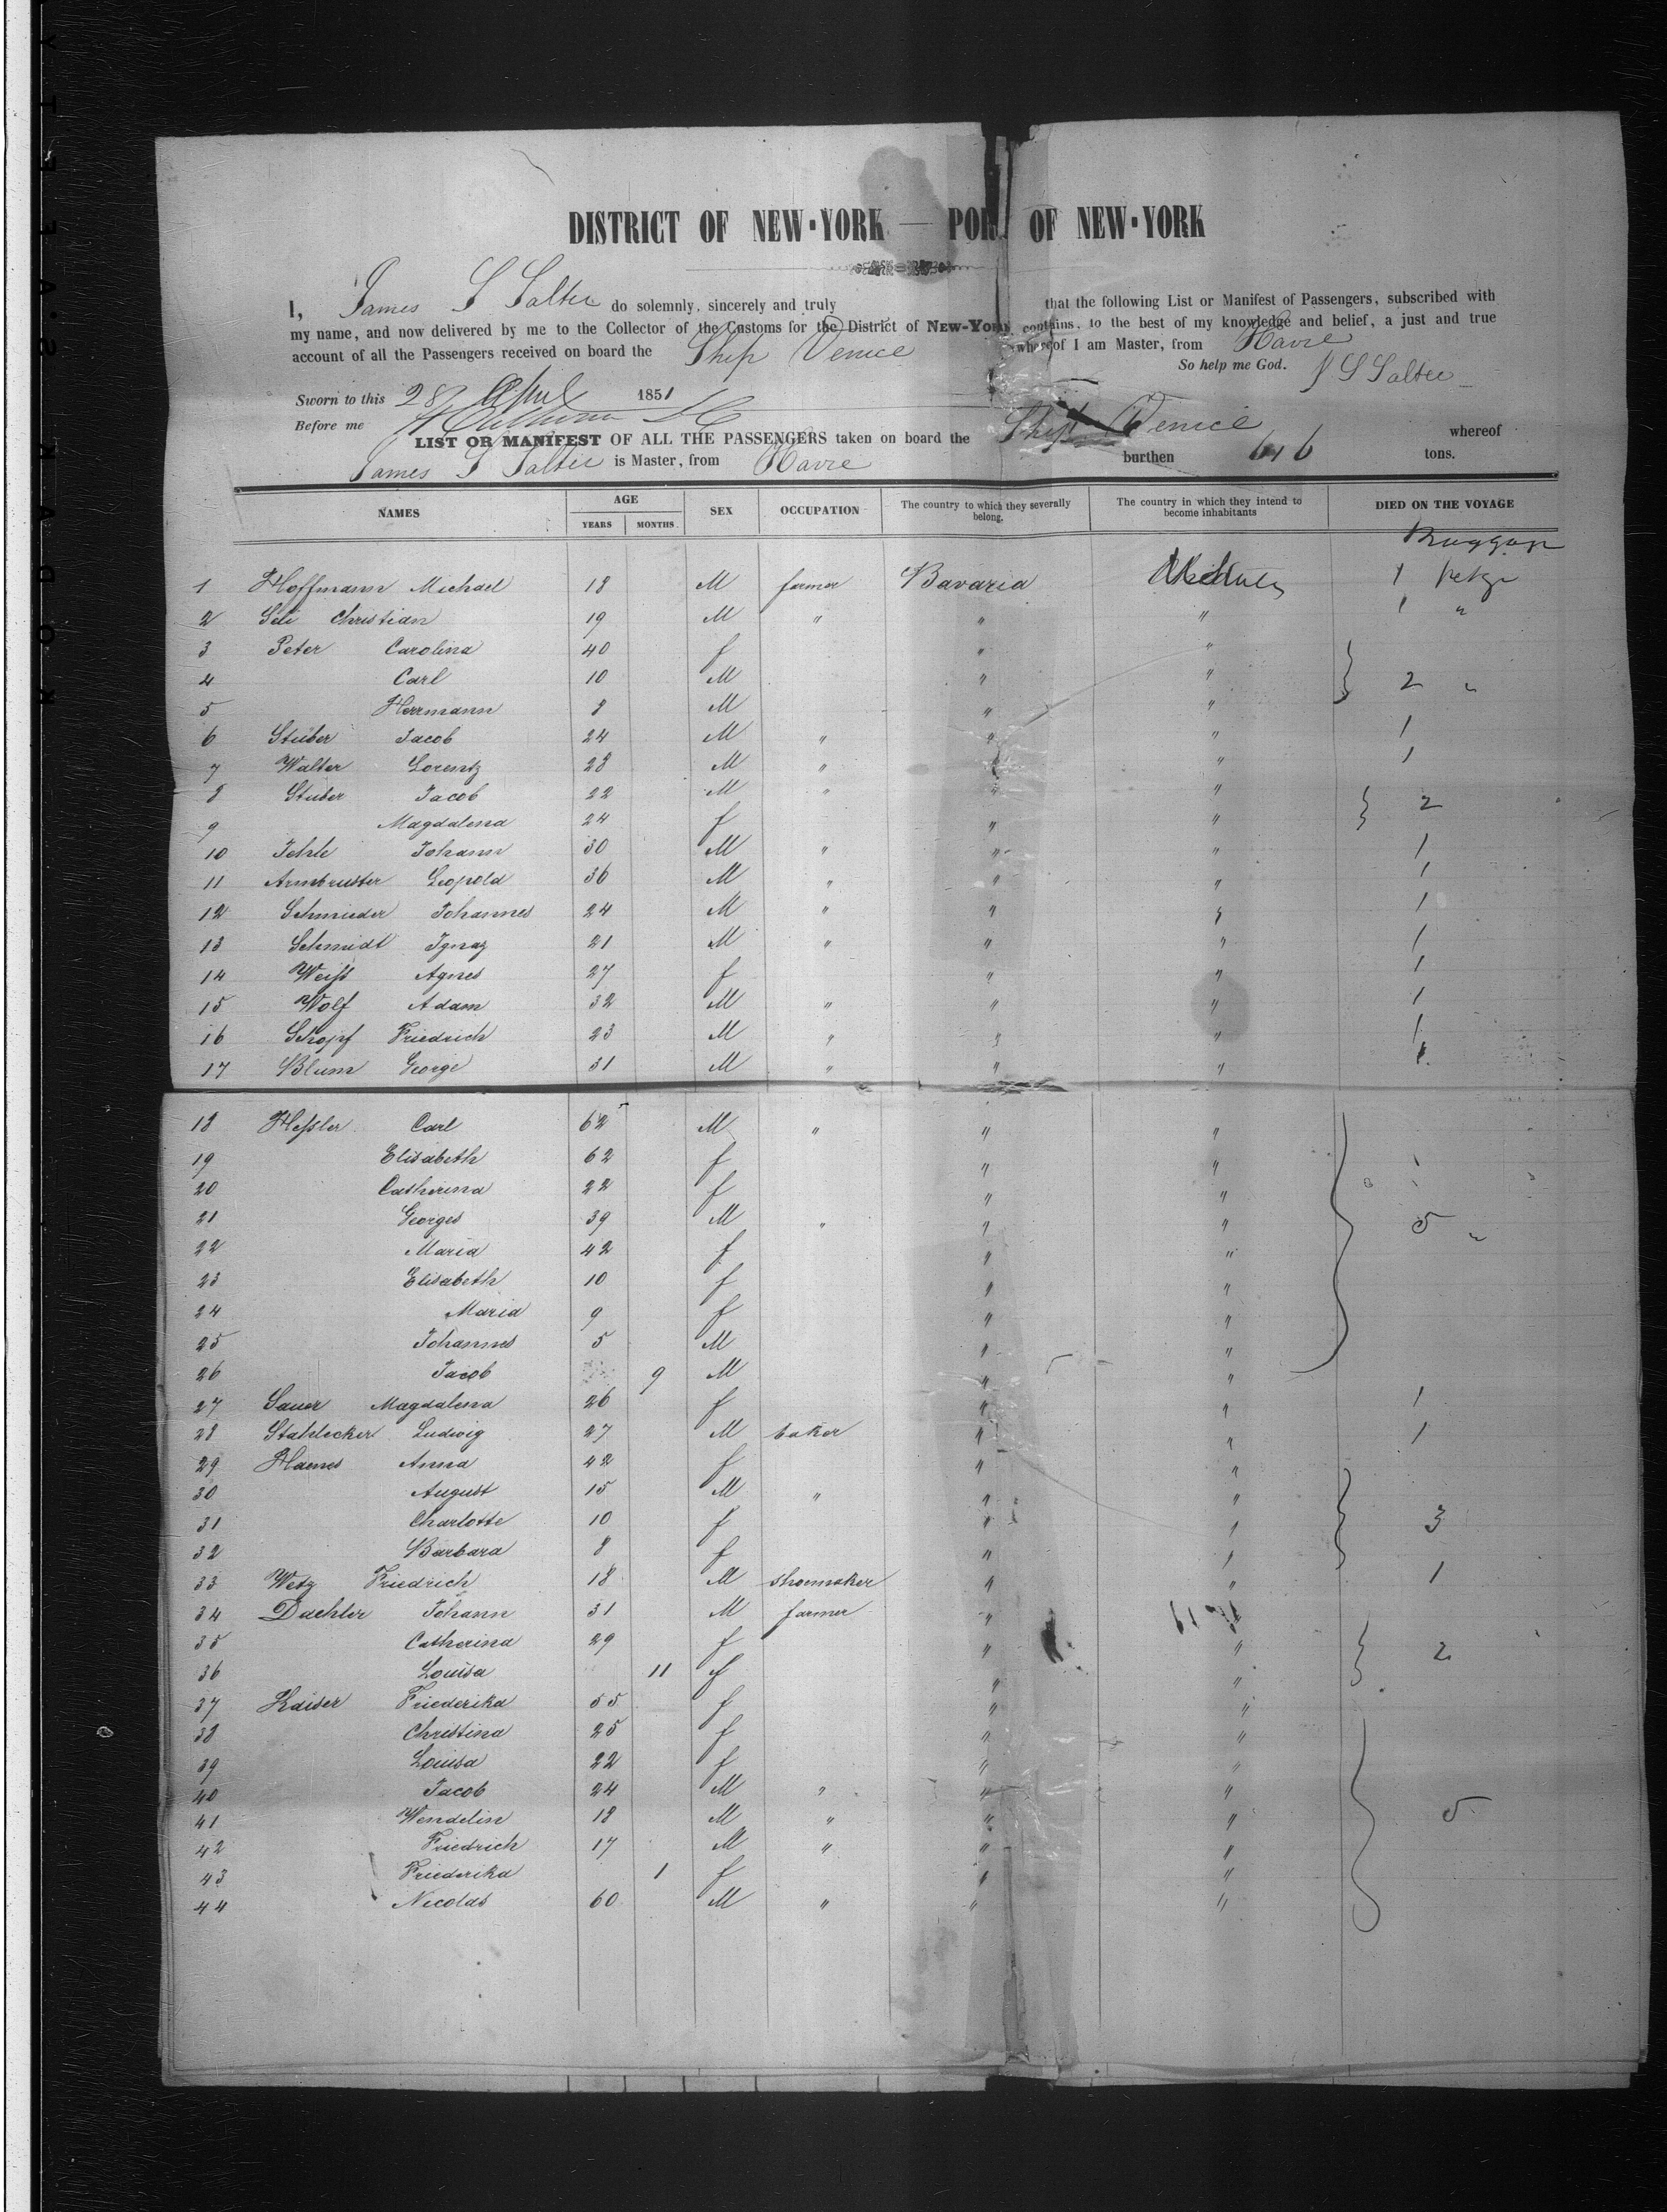 DISTRICT OF NEW-YORK — PORT OF NEW-YORK
I, James S Salter do solemnly, sincerely and truly that the following List or Manifest of Passengers, subscribed with
my name, and now delivered by me to the Collector of the Customs for the District of New-York, contains, to the best of my knowledge and belief, a just and true
account of all the Passengers received on board the Ship Venice whereof I am Master, from Havre
So help me God. J S Salter
Sworn to this 28 April 1851
Before me
LIST OR MANIFEST OF ALL THE PASSENGERS taken on board the Ship Venice whereof
James S Salter is Master, from Havre burthen 646 tons.
NAMES AGE YEARS MONTHS SEX OCCUPATION The country to which they severally belong. The country in which they intend to become inhabitants DIED ON THE VOYAGE
1 Hoffmann Michael 18 M farmer Bavaria 1
2 Christian 19 M " " " 1 "
3 Peter Carolina 40 f " "
4 Carl 10 M " " 2 "
5 Herrmann 8 M " "
6 Stuber Jacob 24 M " " " 1
7 Walter Lorentz 28 M " " " 1
8 Stuber Jacob 22 M " " " 2
9 Magdalena 24 f " "
10 Johann 30 M " " " 1
11 Armbruster Leopold 36 M " " " 1
12 Schmieder Johannes 24 M " " " 1
13 Schmidt Ignaz 21 M " " " 1
14 Weiss Agnes 27 f " " 1
15 Wolf Adam 32 M " " " 1
16 Friedrich 23 M " " " 1
17 Blum George 31 M " " " 1
18 Hessler Carl 62 M " " "
19 Elisabeth 62 f " "
20 Catherina 22 f " "
21 Georges 39 M " " " 5 "
22 Maria 42 f " "
23 Elisabeth 10 f " "
24 Maria 9 f " "
25 Johannes 5 M " "
26 Jacob 9 M " "
27 Sauer Magdalena 26 f " " 1
28 Stahlecker Ludwig 27 M baker " " 1
29 Haenes Anna 42 f " "
30 August 15 M " " "
31 Charlotte 10 f " " 3
32 Barbara 8 f " "
33 Wetz Friedrich 18 M shoemaker " " 1
34 Daehler Johann 31 M farmer " "
35 Catherina 29 f " " 2
36 Louisa 11 f " "
37 Kaiser Friederika 55 f " "
38 Christina 25 f " "
39 Louisa 22 f " "
40 Jacob 24 M " " "
41 Wendelin 18 M " " " 5
42 Friedrich 17 M " " "
43 Friederika 1 f " "
44 Nicolas 60 M " " "